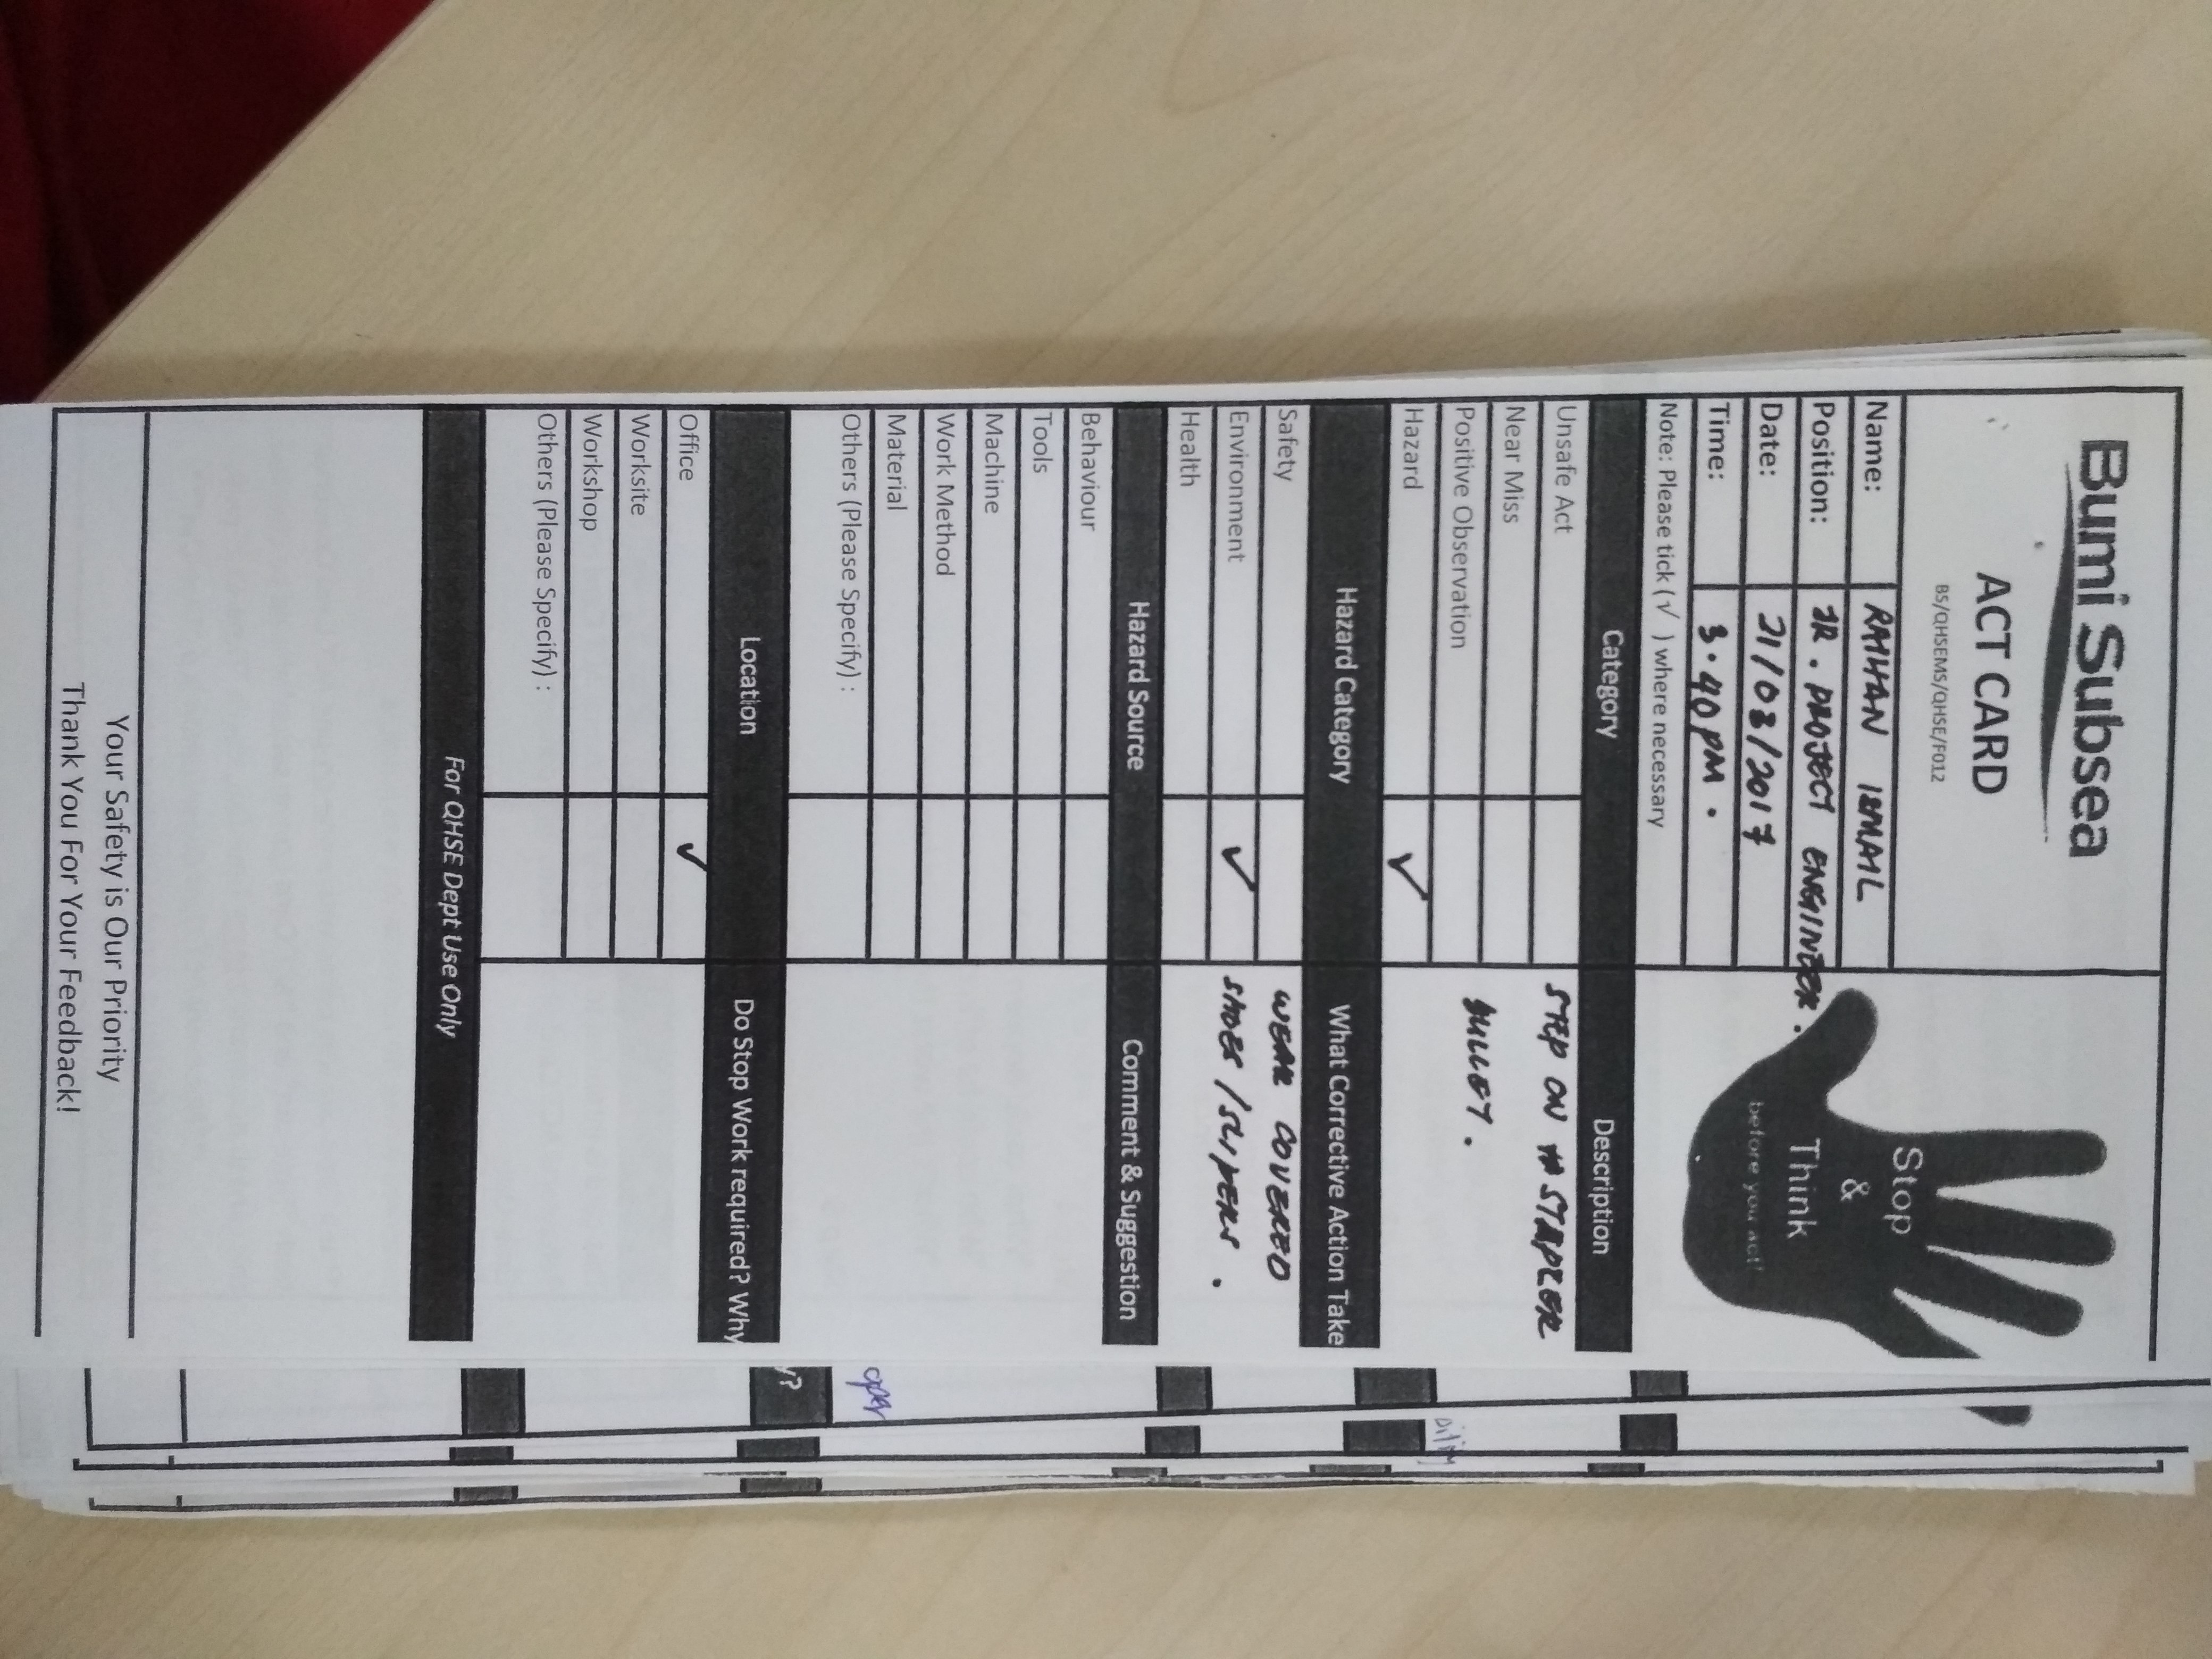 Bumi Subsea
ACT CARD
BS/QHSEMS/QHSE/F012
Stop
&
Think
before you act!
Name: RAIHAN ISMAIL
Position: JR. PROJECT ENGINEER.
Date: 21/03/2017
Time: 3.40 PM.
Note: Please tick (√ ) where necessary
Category Description
Unsafe Act STEP ON STAPLER
Near Miss
Positive Observation BULLET.
Hazard ✓
Hazard Category What Corrective Action Take
Safety WEAR COVERED
Environment ✓ SHOES / SLIPERS.
Health
Hazard Source Comment & Suggestion
Behaviour
Tools
Machine
Work Method
Material
Others (Please Specify) :
Location Do Stop Work required? Why
Office ✓
Worksite
Workshop
Others (Please Specify) :
For QHSE Dept Use Only
Your Safety is Our Priority
Thank You For Your Feedback!
y?